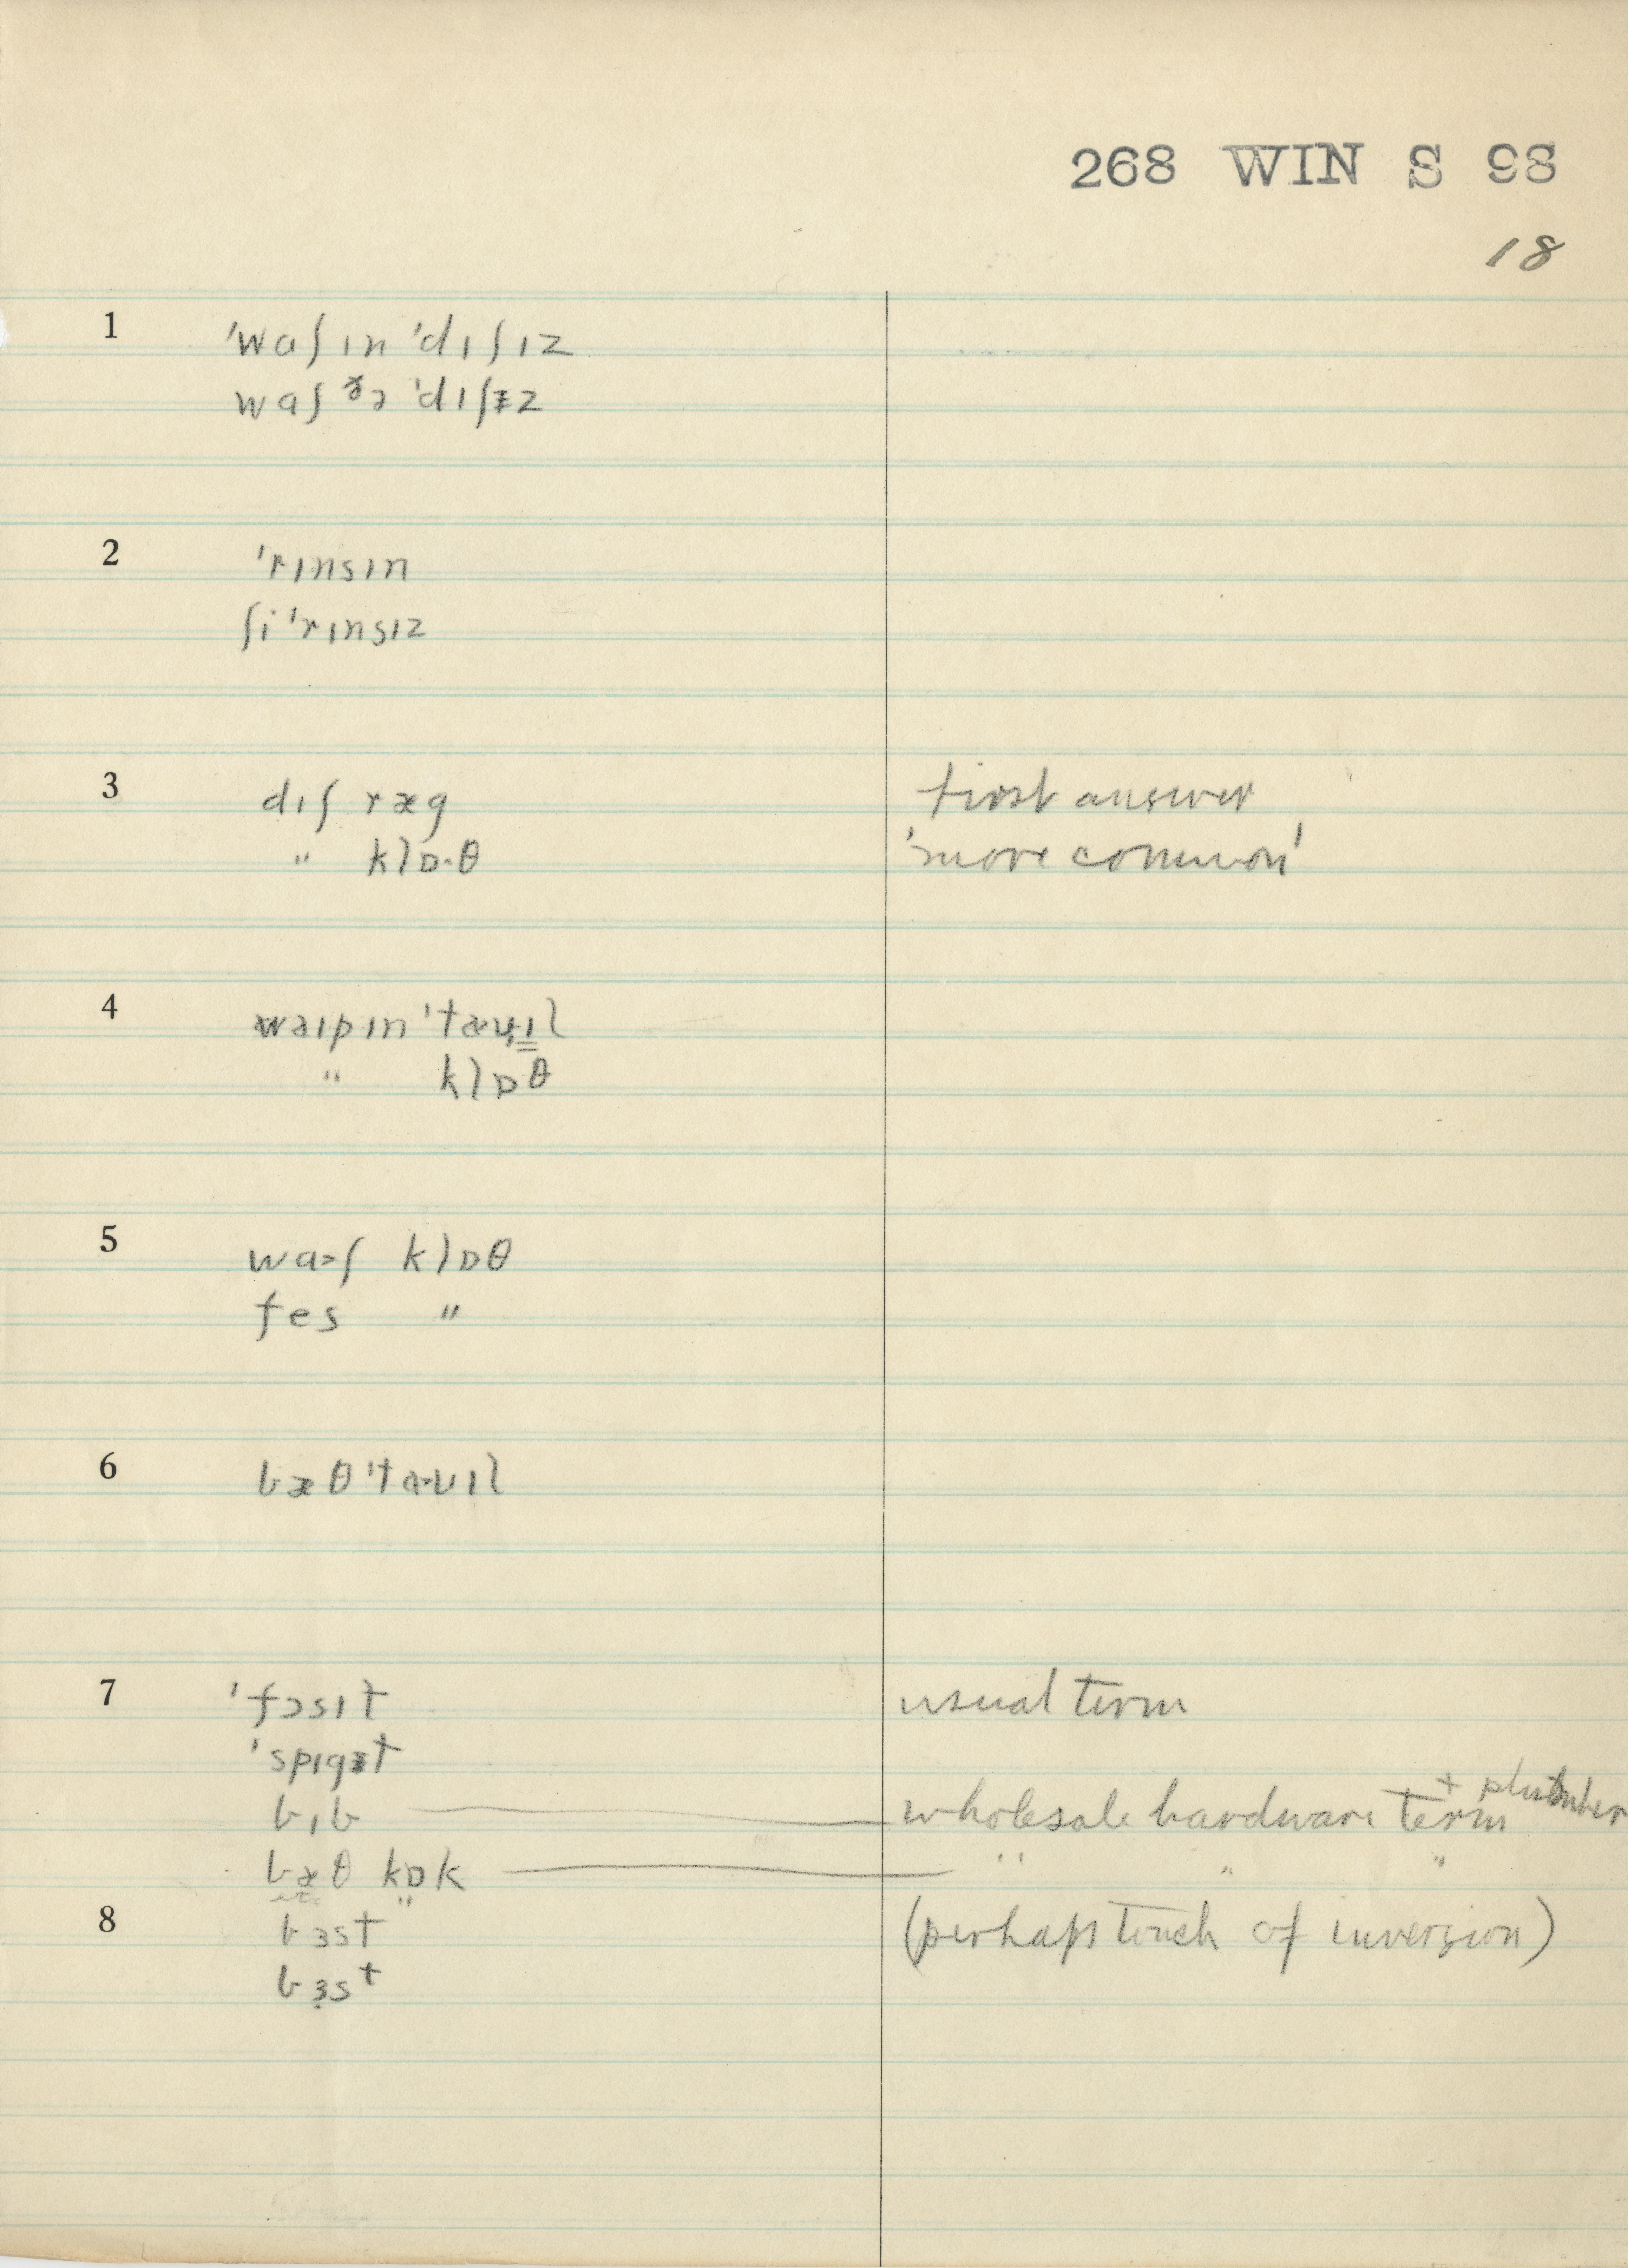 268 WIN S 98
18
1 ˈwaʃɪn ˈdɪʃɪz
waʃ ðə ˈdɪʃɨz
2 ˈrɪnsɪn
ʃi ˈrɪnsɪz
3 dɪʃ ræg first answer
" klɒ·θ 'more common'
4 waɪpɪn ˈtæʊɪl
" klɒθ
5 waʃ klɒθ
fes "
6 bæθ ˈtaʊɪl
7 ˈfɔsɪt usual term
ˈspɪgɨt
bɪb wholesale hardware term + plumber
bæθ kɒk " " "
8 bɜst (perhaps touch of inversion)
bɜst